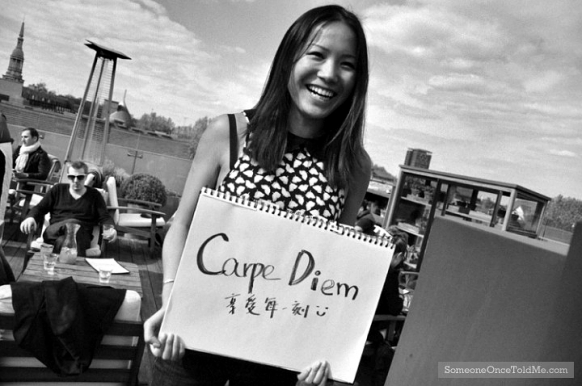 Carpe Diem
享愛每一刻 :)
SomeoneOnceToldMe.com